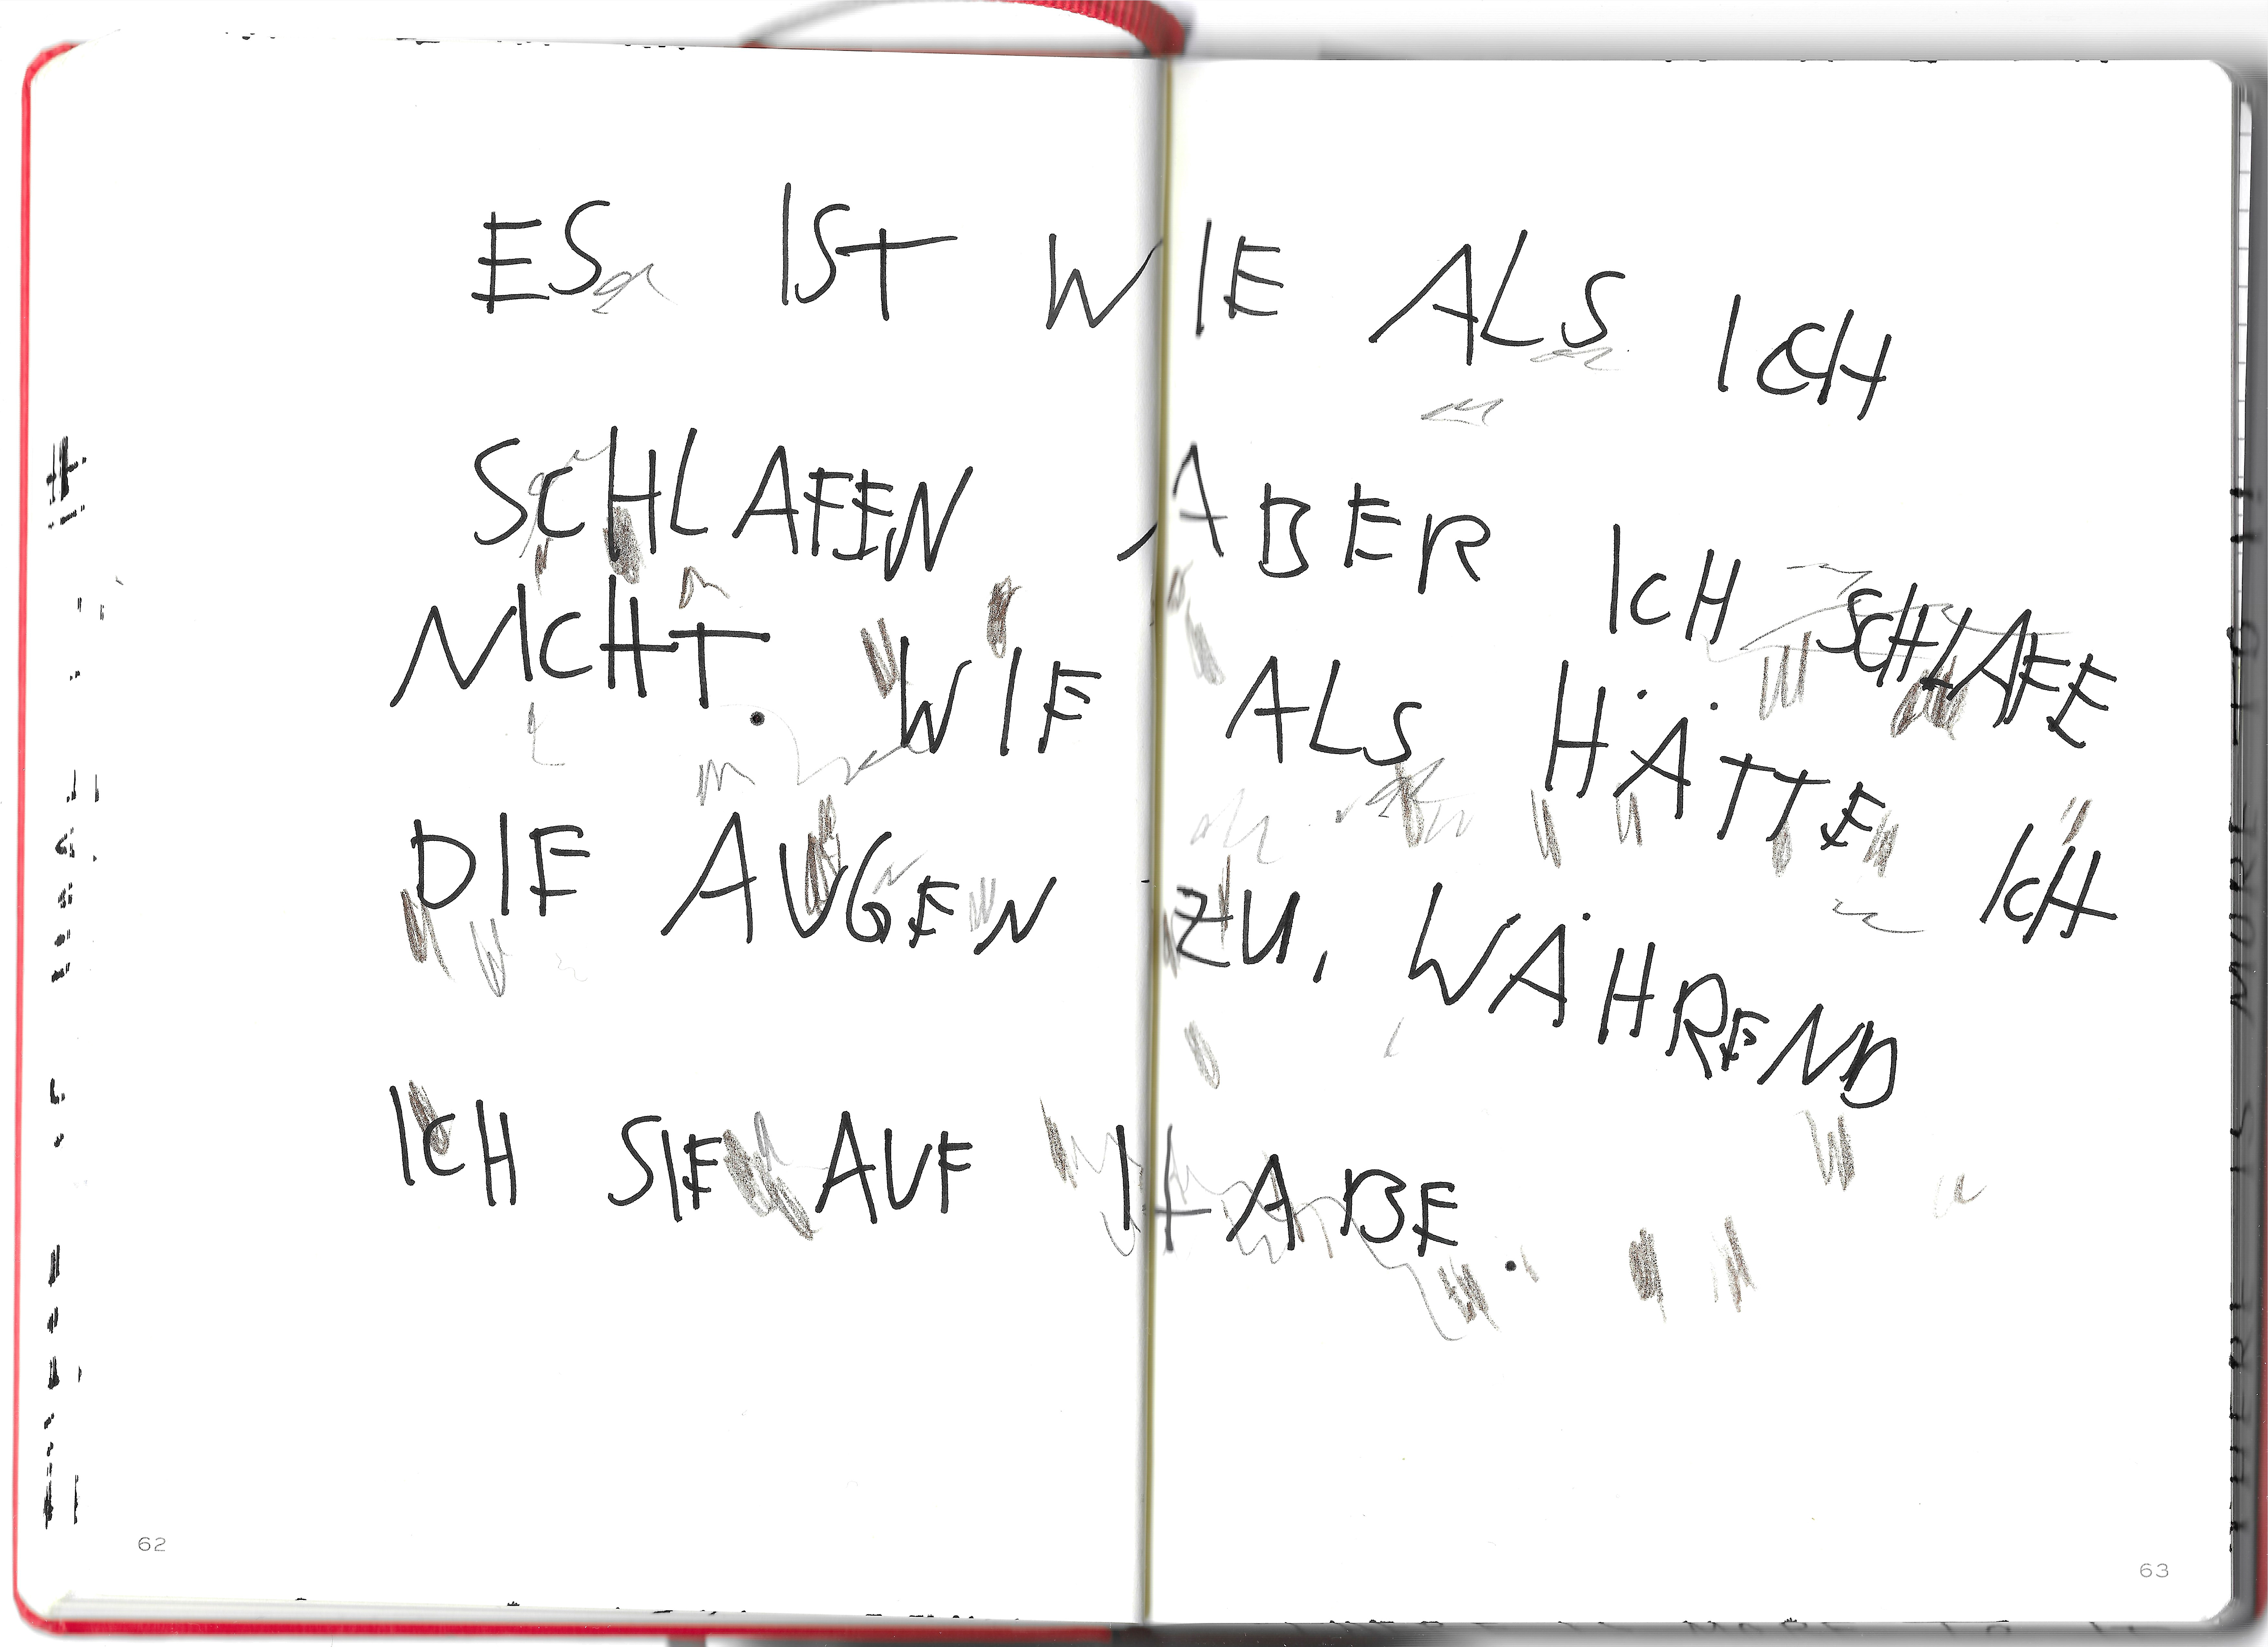 ES IST WIE ALS ICH
SCHLAFEN ABER ICH SCHLAFE
NICHT. WIE ALS HÄTTE ICH
DIE AUGEN ZU, WÄHREND
ICH SIE AUF HABE.
62
63